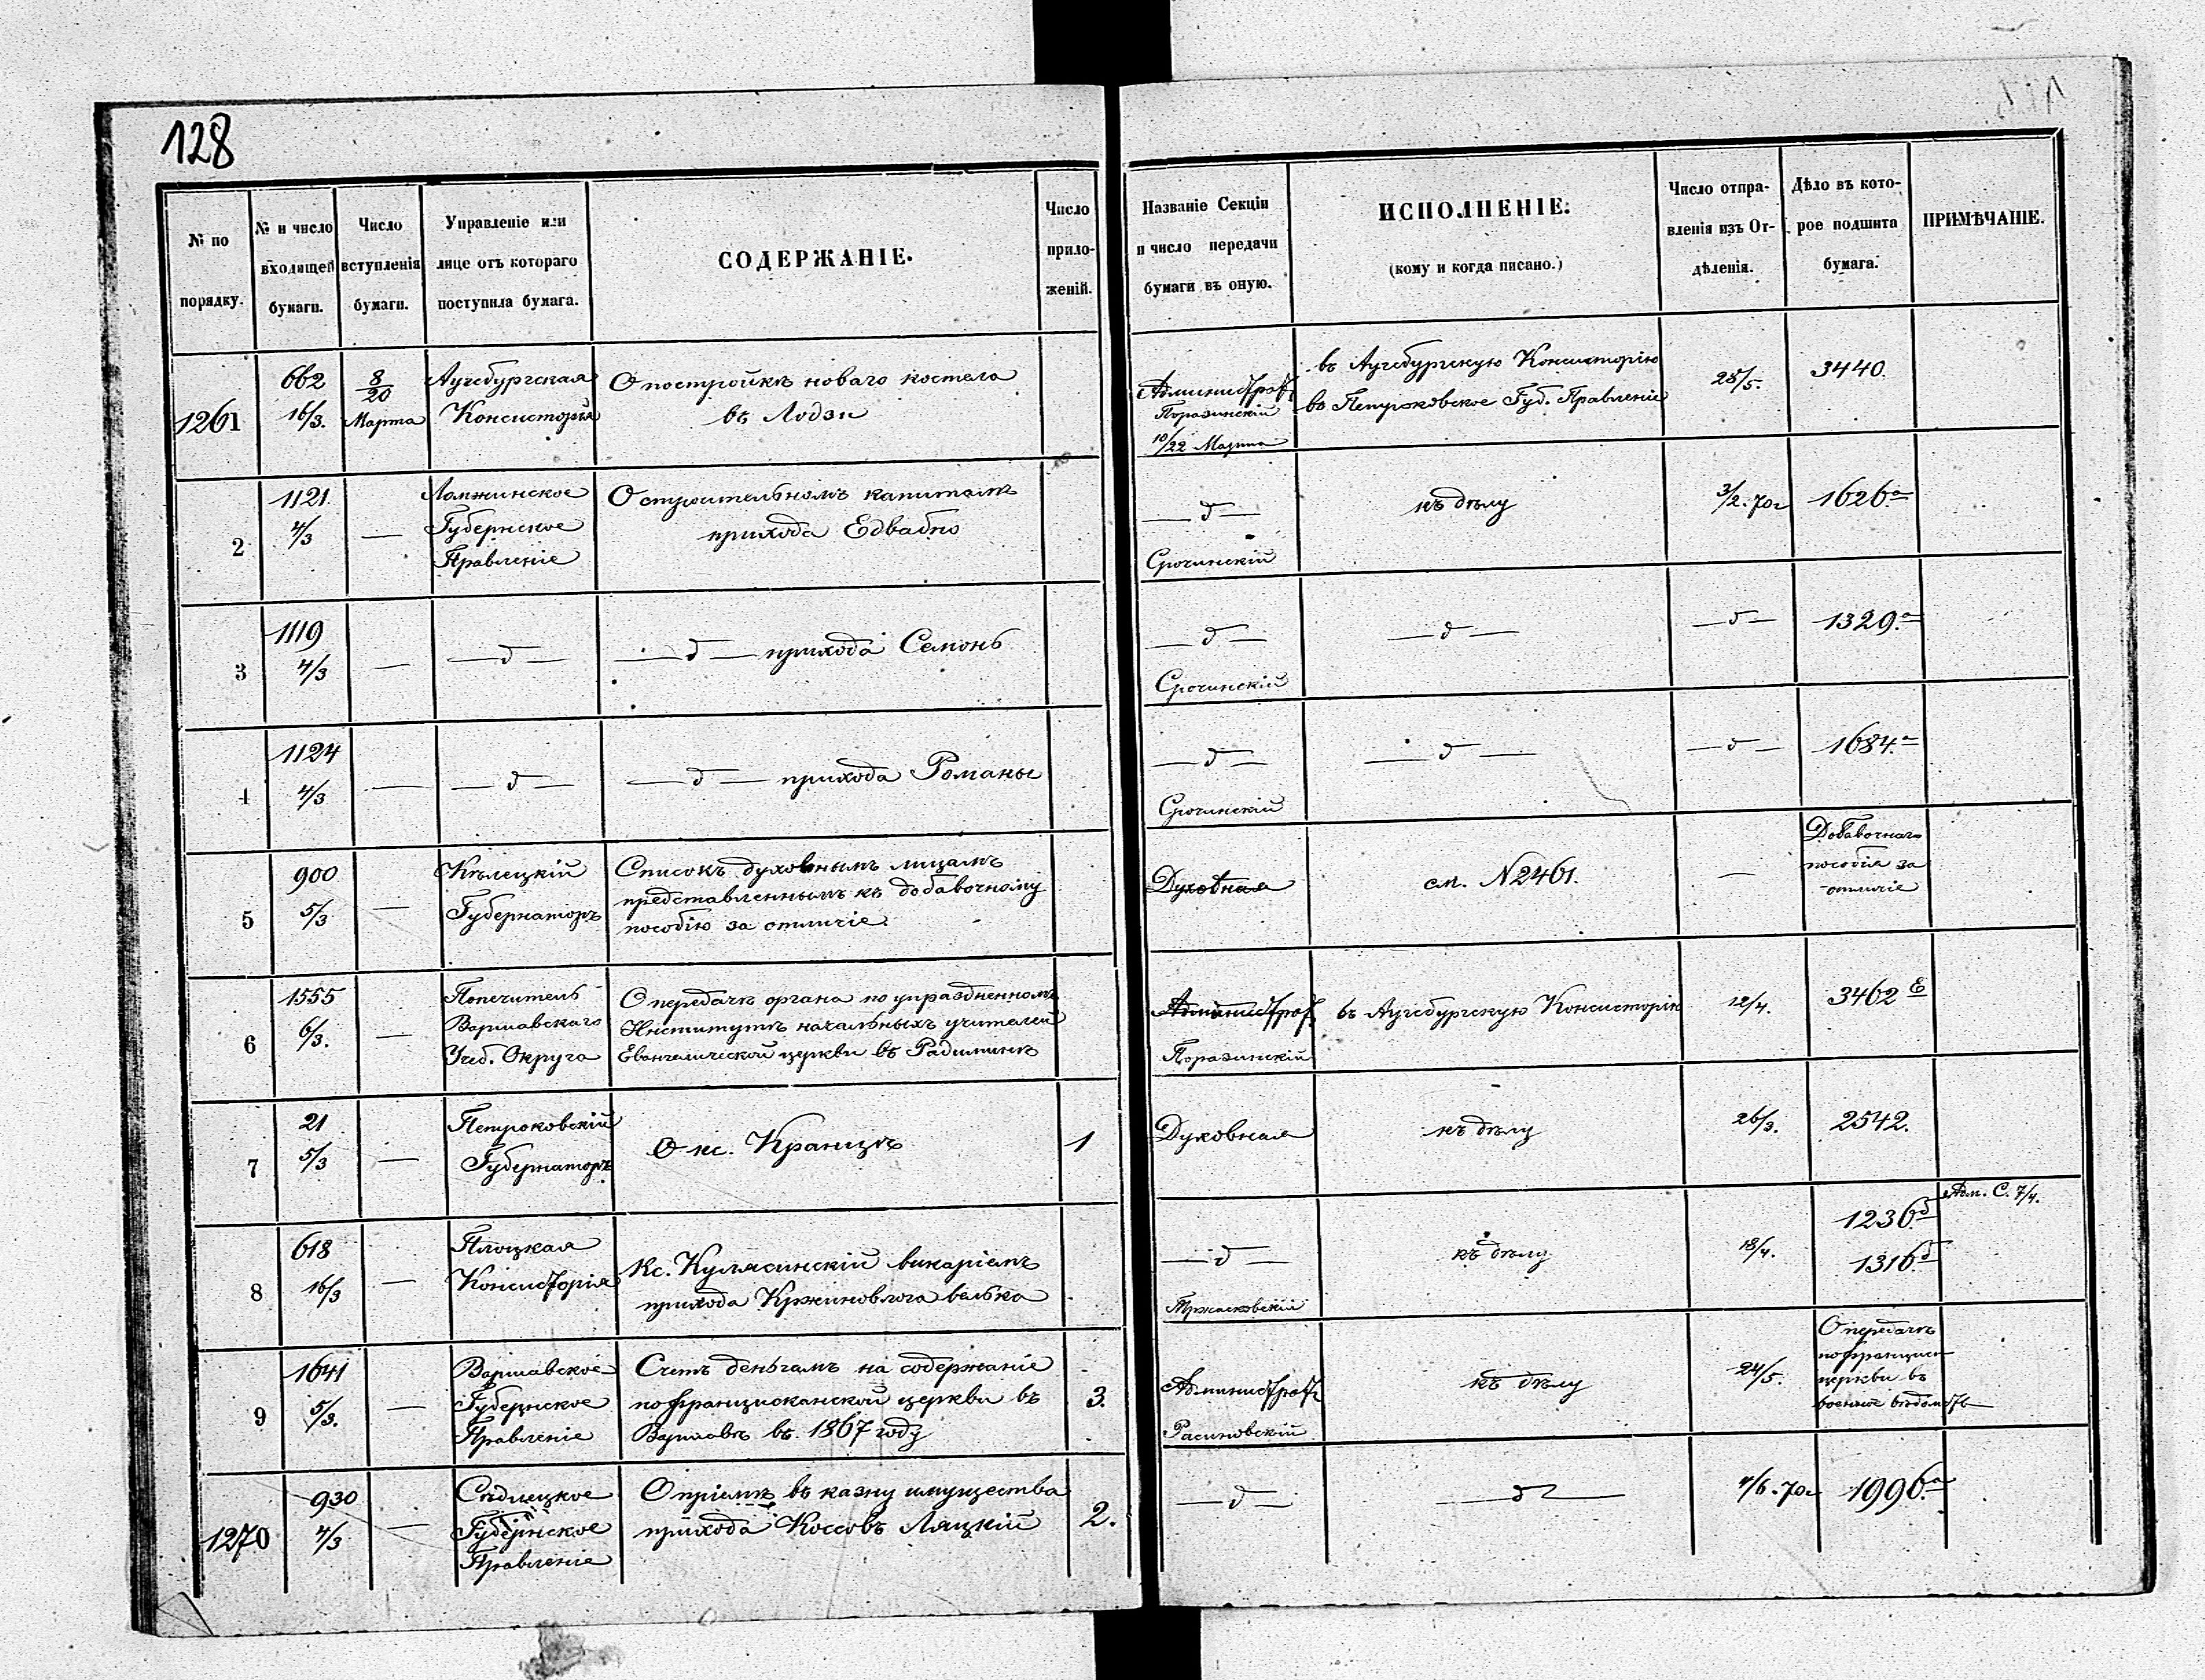 128
№ по порядку.
№ и число входящей бумаги.
Число вступленія бумаги.
Управленіе или лице отъ котораго поступила бумага.
СОДЕРЖАНІЕ.
Число приложеній.
Названіе Секціи и число передачи бумаги въ оную.
ИСПОЛНЕНІЕ:
(кому и когда писано.)
Число отправленія изъ Отдѣленія.
Дѣло въ которое подшита бумага.
ПРИМѢЧАНІЕ.
1261
662
16/3.
8/20
Марта
Аугсбургская
Консисторія
О постройкѣ новаго костела
въ Лодзи
Администрат
Поразинскій
10/22 Марта
въ Аугсбургскую Консисторію
въ Петроковское Губ. Правленіе
28/5.
3440.
2
1121
4/3
—
Ломжинское
Губернское
Правленіе
О строительномъ капиталѣ
прихода Едвабно
— д —
Срочинскій
къ дѣлу
3/2. 70 г
1626 а
3
1119
4/3
—
— д —
— д — прихода Семонь
— д —
Срочинскій
— д —
— д —
1329. а
4
1124
4/3
—
— д —
— д — прихода Романы
— д —
Срочинскій
— д —
— д —
1684. а
5
900
5/3
—
Кѣлецкій
Губернаторъ
Списокъ духовнымъ лицамъ
представленнымъ къ добавочному
пособію за отличіе.
Духовная
см. № 2461.
—
Добавочнаго
пособія за
отличіе
6
1555
6/3.
—
Попечитель
Варшавскаго
Учеб. Округа
О передачѣ органа по упраздненномъ
Институтѣ начальныхъ учителей
Евангелической церкви въ Радиминѣ
Администрат
Поразинскій
въ Аугсбургскую Консисторію
12/4.
3462 Е
7
21
5/3
—
Петроковскій
Губернаторъ
О кс. Кранцѣ
1
Духовная
къ дѣлу
26/3.
2542.
8
618
16/3
—
Плоцкая
Консисторія
Кс. Кулясинскій викаріемъ
прихода Кржиновлога велька
— д —
къ дѣлу
18/4.
1236. д
1316. д
Адм. С. 7/4.
9
1641
5/3.
—
Варшавское
Губернское
Правленіе
Счетъ деньгамъ на содержаніе
пофранцисканской церкви въ
Варшавѣ въ 1867 году
3.
Администрат
Расиновскій
къ дѣлу
24/5.
О передачѣ
пофранциск
церкви въ
военное вѣдомств
1270
930
4/3
—
Сѣдлецкое
Губернское
Правленіе
О пріемѣ въ казну имущества
прихода Коссовъ Ляцкій
2.
— д —
— д —
4/6. 70 г
1996. а